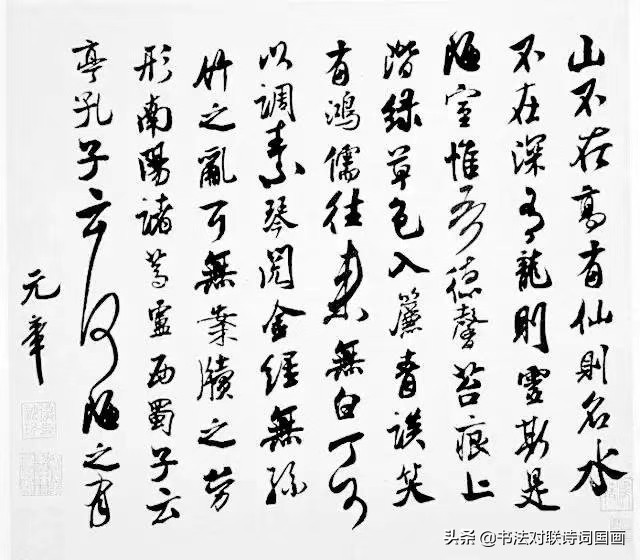 山不在高有仙則名水
不在深有龍則靈斯是
陋室惟吾德馨苔痕上
階緑草色入簾青談笑
有鴻儒往來無白丁可
以調素琴閱金經無絲
竹之亂耳無案牘之勞
形南陽諸葛廬西蜀子云
亭孔子云何陋之有
元章
头条 @书法对联诗词国画